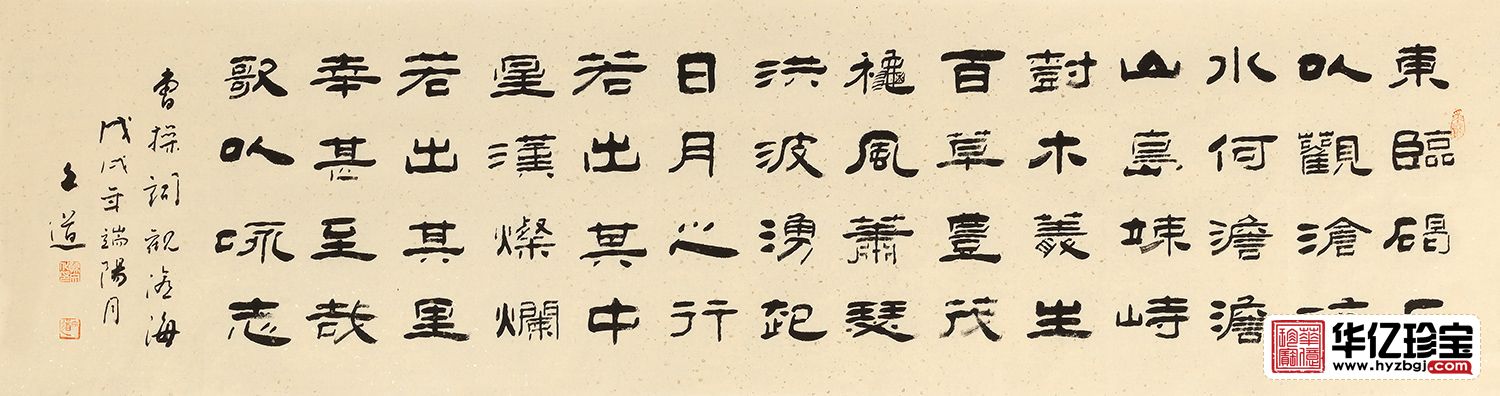 東臨碣石
以觀滄
水何澹澹
山島竦峙
尌木叢生
百草豊茂
龝風蕭瑟
洪波湧起
日月之行
若出其中
星漢燦爛
若出其里
幸甚至哉
歌以咏志
曹操詞觀滄海
戊戌年端陽月
道
华亿珍宝
www.hyzbgj.com